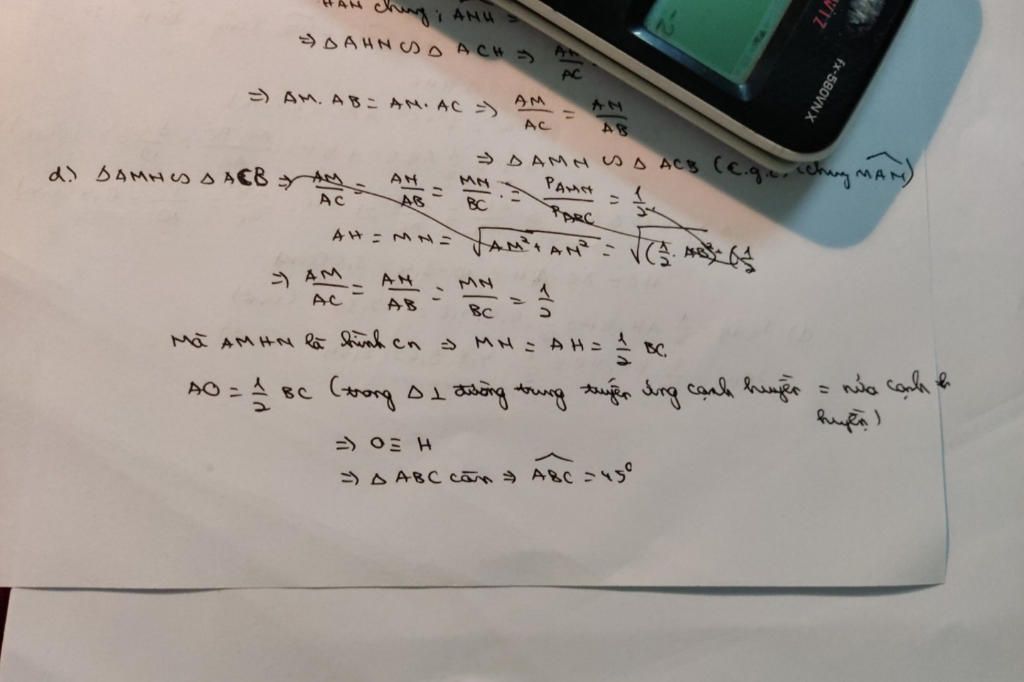 HAN chung; ANH =
⇒ Δ AHN ∽ Δ ACH ⇒ AH/AC
⇒ AM. AB = AN. AC ⇒ AM/AC = AN/AB
⇒ Δ AMN ∽ Δ ACB (c.g.c, chung MAN)
d.) Δ AMN ∽ Δ ACB ⇒ AM/AC = AN/AB = MN/BC = P_AMN/P_ABC = 1/2
AH = MN = √(AM² + AN²) = √((1/2 . AB)² + (1/2
⇒ AM/AC = AN/AB = MN/BC = 1/2
Mà AMHN là hình cn ⇒ MN = AH = 1/2 BC.
AO = 1/2 BC (trong Δ ⊥ đường trung tuyến ứng cạnh huyền = nửa cạnh h
huyền)
⇒ O ≡ H
⇒ Δ ABC cân ⇒ ABC = 45°
fx-580VNX